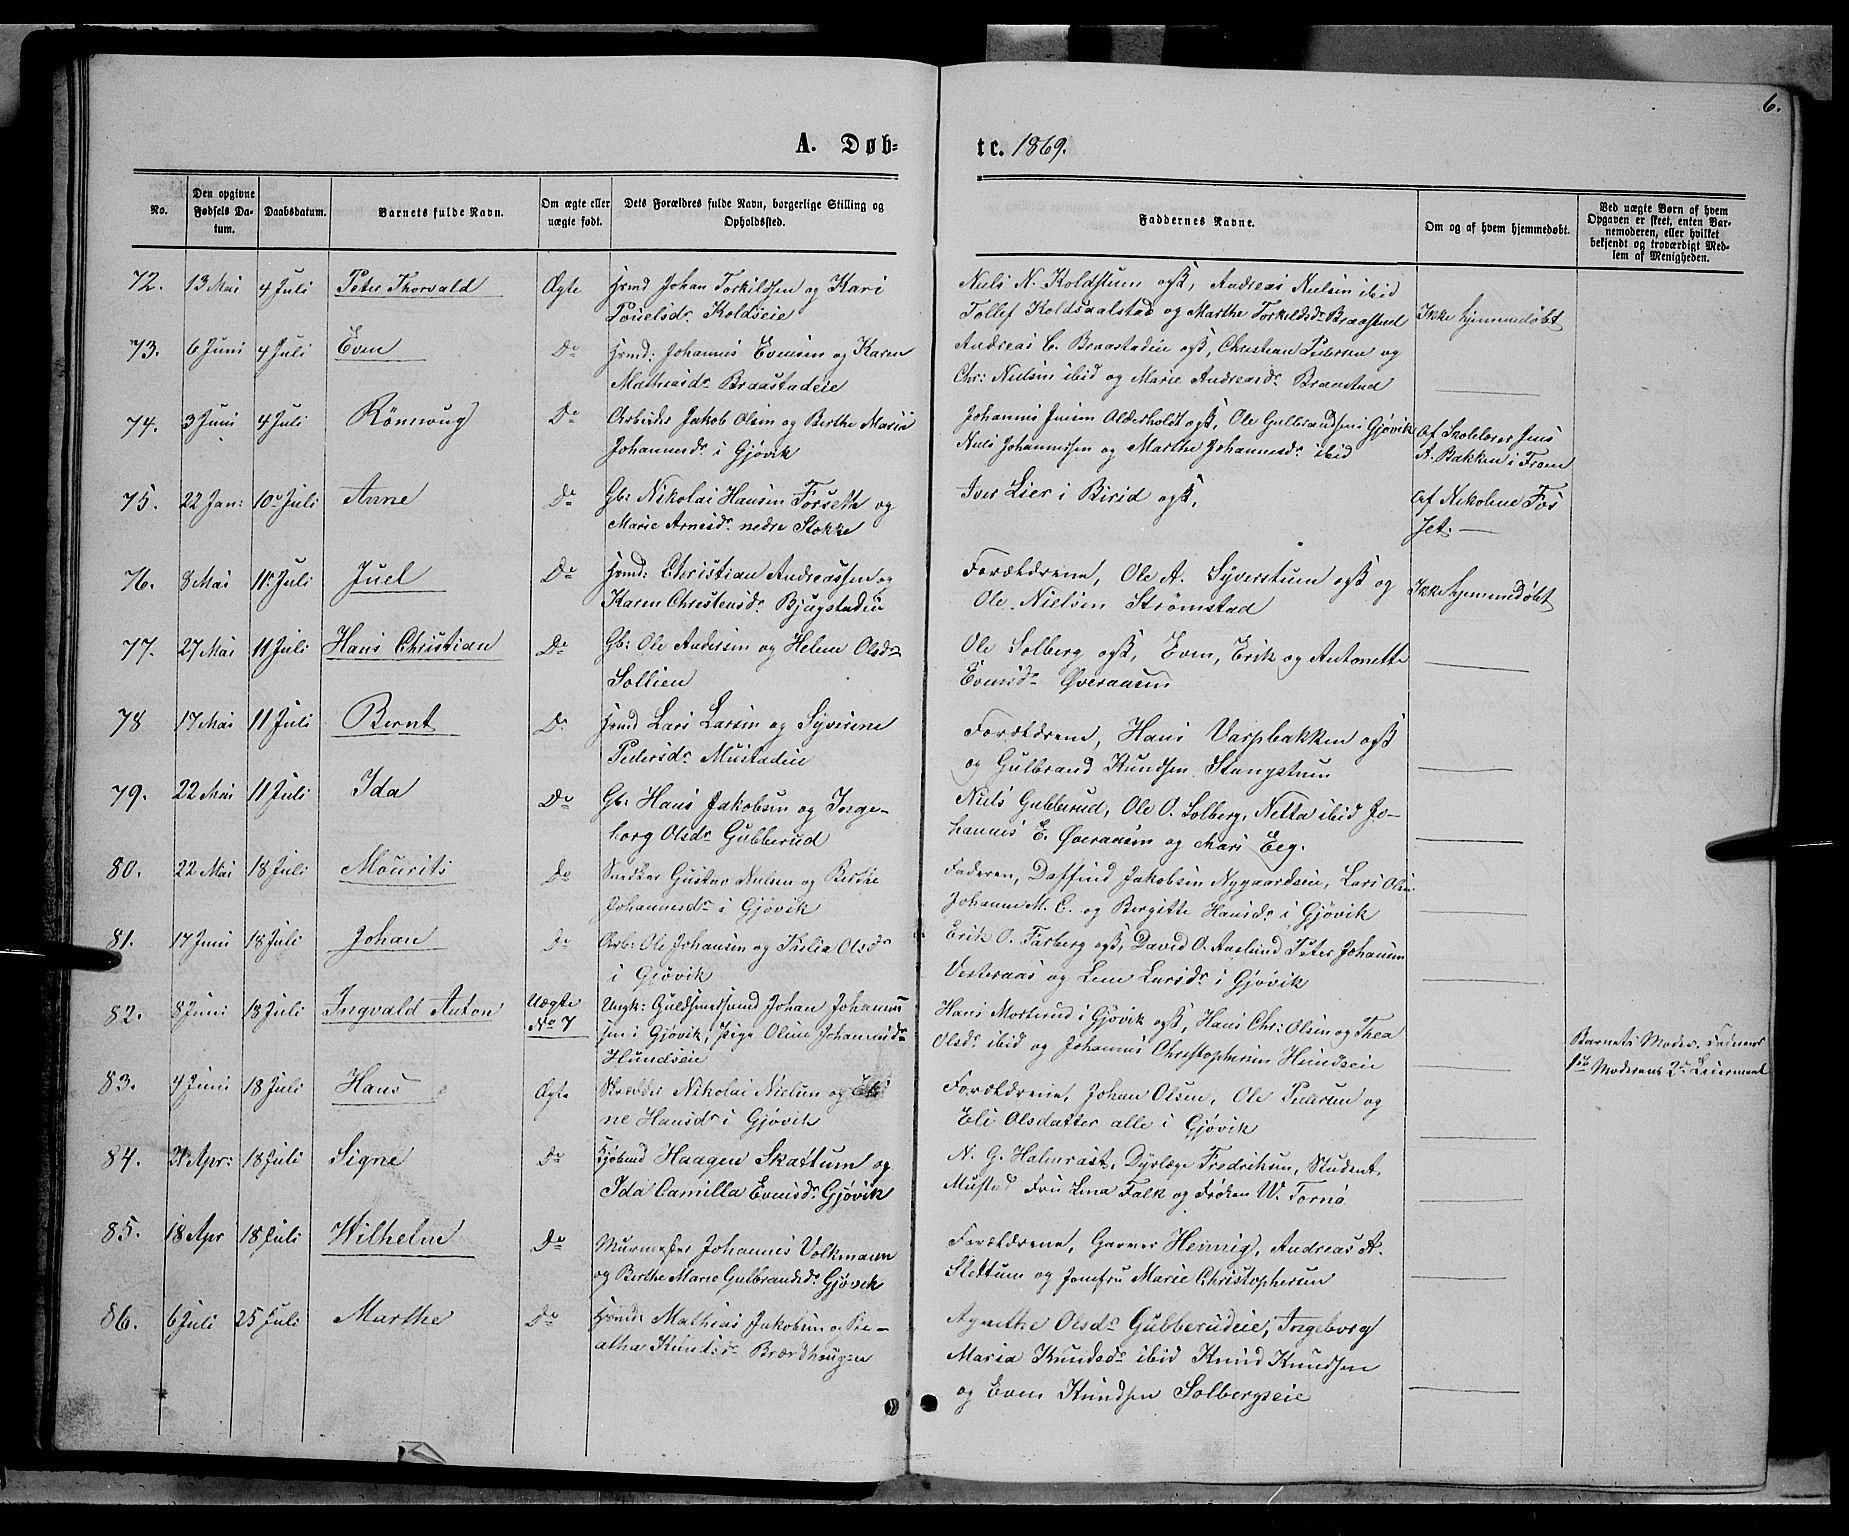 6.
A. Døb- te. 1869.
No.
Den opgivne Fødsels Da-tum.
Daabsdatum.
Barnets fulde Navn.
Om ægte eller uægte født.
Dets Forældres fulde Navn, borgerlige Stilling og Opholdssted.
Faddernes Navne.
Om og af hvem hjemmedøbt.
Ved uægte Børn af hvem Opgaven er skeet, enten Bar-nemoderen, eller hvilket bekjendt og troværdigt Med-lem af Menigheden.
72. 13 Mai 4 Juli Peter Thorvald Ægte Hmd Johan Torkildsen og Kari
Pouelsdr Koldseie
Niels N. Koldstum ogß, Andreas Nielsen ibid
Tollef Koldsaalstad og Marthe Torkildsdr Braastad
Ikke hjemmedøbt
73. 6 Juni 4 Juli Even Do Hmd: Johannes Evensen og Karen
Mathiasdr Braastadeie
Andreas C. Braastadeie ogß, Christian Pedersen og
Chr: Nielsen ibid og Marie Andreasdr Braastad
74. 3 Juni 4 Juli Rönnoug Do Arbeider Jakob Olsen og Berthe Maria
Johannesdr i Gjøvik
Johannes Jensen Alderholdt ogß, Ole Gulbrandsen i Gjøvik
Niels Johannessen og Marthe Johannesdr ibid
Af Skolelærer Jens
A. Bakken i From
75. 22 Jan: 10 Juli Anne Do Gb: Nikolai Hansen Forseth og
Marie Arnesdr nedre Stokke
Iver Lier i Birid ogß,
Af Nikoline Fos
set.
76. 8 Mai 11 Juli Juel Do Hmd: Christian Andreassen og
Karen Christensdr Bjugstadeie
Forældrene, Ole A. Syverstum ogß og
Ole Nielsen Strømstad
Ikke hjemmedøbt
77. 27 Mai 11 Juli Hans Christian Do Gb: Ole Andersen og Helene Olsdr
Sollien
Ole Solberg ogß, Even, Erik og Antonette
Evensdr Øveraasen
78 17 Mai 11 Juli Bernt Do Hmd Lars Larsen og Syverine
Pedersdr Mustadeie
Forældrene, Hans Varpbakken ogß
og Gulbrand Knudsen Stangstum
79. 22 Mai 11 Juli Ida Do Gb: Hans Jakobsen og Inge-
borg Olsdr Gubberud
Niels Gubberud, Ole O. Solberg, Netta ibid Jo-
hannes E. Øveraasen og Mari Eeg.
80. 22 Mai 18 Juli Mourits Do Snedker Gustav Nielsen og Berthe
Johannesdr i Gjøvik
Faderen, Daffind Jakobsen Nygaardseie, Lars Olsen
Johanne M. C. og Bergitte Hansdr i Gjøvik
81. 17 Juni 18 Juli Johan Do Arb: Ole Johansen og Thelia Olsdr
i Gjøvik
Erik O. Farberg ogß, David O. Aaslund Peter Johansen
Vesteraas og Lene Larsdr i Gjøvik
82. 8 Juni 18 Juli Ingvald Anton Uægte
No 7
Ungk: Guldsmedsvend Johan Johannes
sen i Gjøvik, Pige Oline Johannesdr
Hundseie
Hans Morterud i Gjøvik ogß, Hans Chr: Olsen og Thea
Olsdr ibid og Johannes Christophersen Hundseie
Barnets Moder. Faderens
1ste Moderens 2det Leiermaal
83. 4 Juni 18 Juli Hans Ægte Skrædder Nikolai Nielsen og
ne Hansdr i Gjøvik
Forældrene, Johan Olsen, Ole Pedersen og
Eli Olsdatter alle i Gjøvik
84. 21 Apr: 18 Juli Signe Do Kjøbmd Haagen Skattum og
Ida Camilla Evensdr Gjøvik
N. G. Halmrast, Dyrlæge Fredriksen, Student
Mustad Fru Lina Falk og Frøken W. Tornö
85. 18 Apr 18 Juli Wilhelm Do Murmester Johannes Volkmann
og Berthe Marie Gulbrandsdr Gjøvik
Forældrene, Garver Hennig, Andreas A.
Slettum og Jomfru Marie Christophersen
86. 6 Juli 25 Juli Marthe Do Hmd: Mathias Jakobsen og Pe-
atha Knutsdr Brædhaugen
Agnethe Olsdr Gubberudeie, Ingeborg
Maria Knudsdr ibid Knud Knudsen
og Even Knudsen Solbergseie